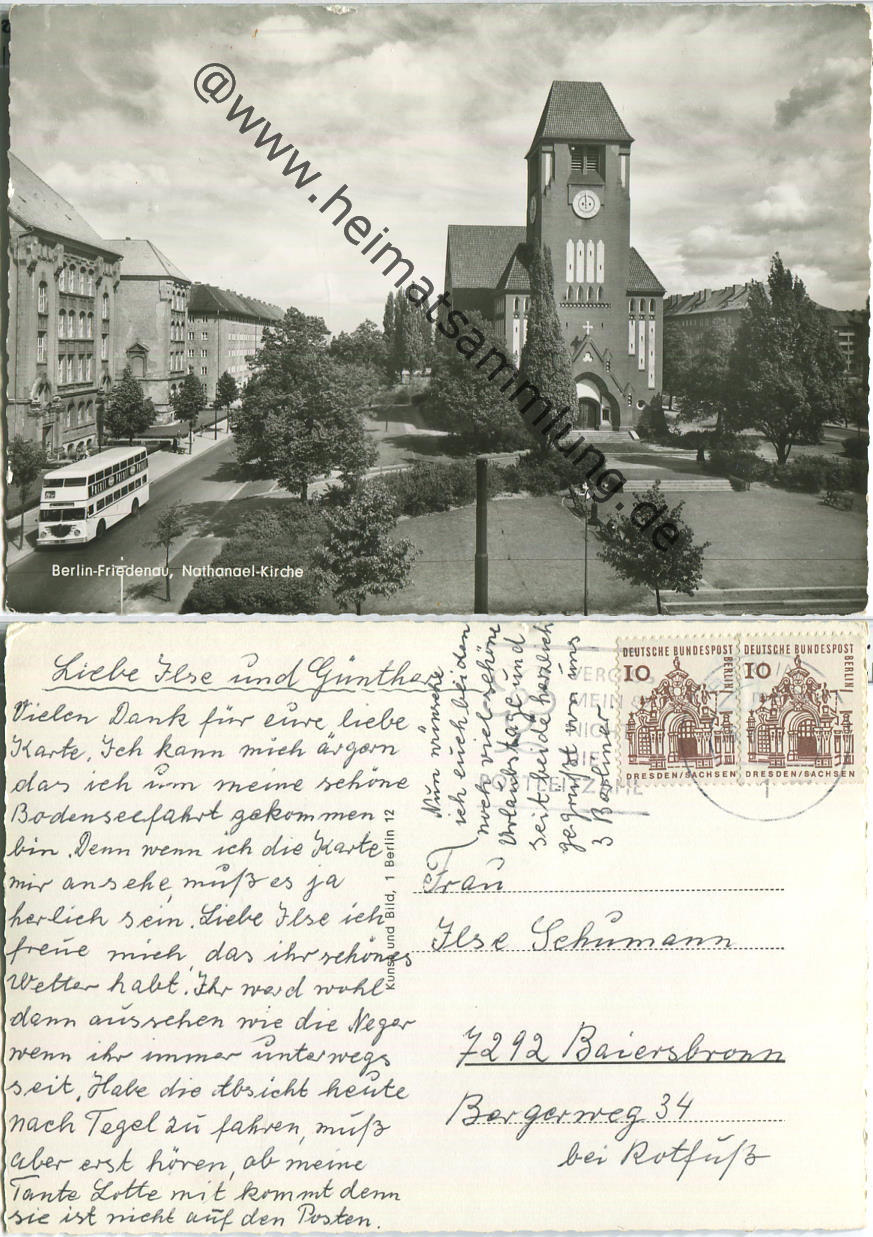 @www.heimatsammlung.de
Berlin-Friedenau, Nathanael-Kirche
Liebe Ilse und Günther
Vielen Dank für eure liebe
Karte. Ich kann mich ärgern
das ich um meine schöne
Bodenseefahrt gekommen
bin. Denn wenn ich die Karte
mir ansehe, muß es ja
herlich sein. Liebe Ilse ich
freue mich, das ihr schönes
Wetter habt. Ihr werd wohl
dann aussehen wie die Neger
wenn ihr immer unterwegs
seit. Habe die Absicht heute
nach Tegel zu fahren, muß
aber erst hören, ob meine
Tante Lotte mit kommt denn
sie ist nicht auf den Posten.
Nun wünsche
ich euch beiden
noch viel schöne
Urlaubstage und
seit beide herzlich
gegrüßt von uns
3 Berliner
Kunst und Bild, 1 Berlin 12
DEUTSCHE BUNDESPOST
BERLIN
10
DRESDEN/SACHSEN
DEUTSCHE BUNDESPOST
BERLIN
10
DRESDEN/SACHSEN
MEIN
1
Frau
Ilse Schumann
7292 Baiersbronn
Bergerweg 34
bei Rotfuß